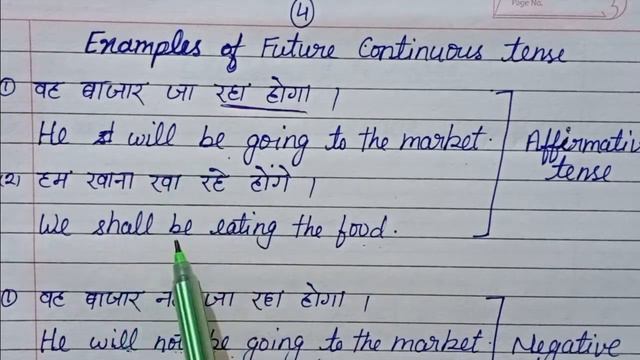 Page No.
④
Examples of Future Continuous tense
① वह बाजार जा रहा होगा ।
He will be going to the market.
Affirmativ
tense
(2) हम खाना खा रहे होंगे ।
We shall be eating the food.
① वह बाजार जा रहा होगा ।
He will not be going to the market.
Negative